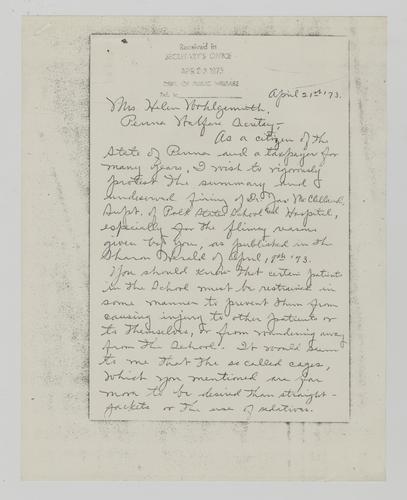 Received in
SECRETARY'S OFFICE
APR 23 1973
DEPT. OF PUBLIC WELFARE
April 21st '73.
Mrs Helen Wohlgemuth,
Penna Walfare Secretay-
As a citizen of the
State of Penna and a taxpayer for
many years, I wish to vigorously
protest the summary and
undeserved firing of Dr Jas McClelland,
Supt. of Polk State School and Hospital,
especially for the flimsy reasons
given by you, as published in the
Sharon Herald of April, 18th '73.
You should know that certain patients
in the School must be restrained in
some manner to prevent them from
causing injury to other patients or
to themselves, or from wandering away
from the School. It would seem
to me that the so called cages,
which you mentioned are far
more to be desired than straight-
jackets or the use of sedatives.